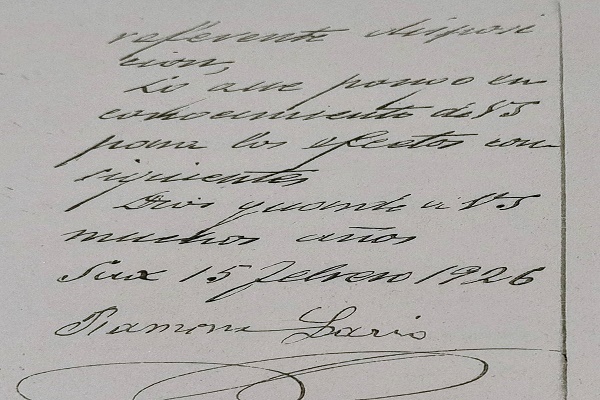 referente disposi
cion,
Lo que pongo en
conocimiento de VS
para los efectos con-
siguientes
Dios guarde a VS
muchos años
Jaca 15 febrero 1926
Ramona Lario